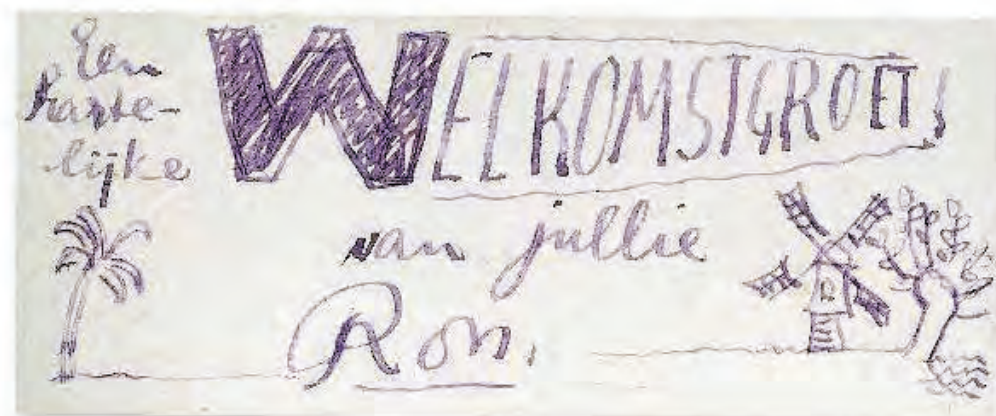 Een
harte-
-lijke
WELKOMSTGROET!
van jullie
Ron.